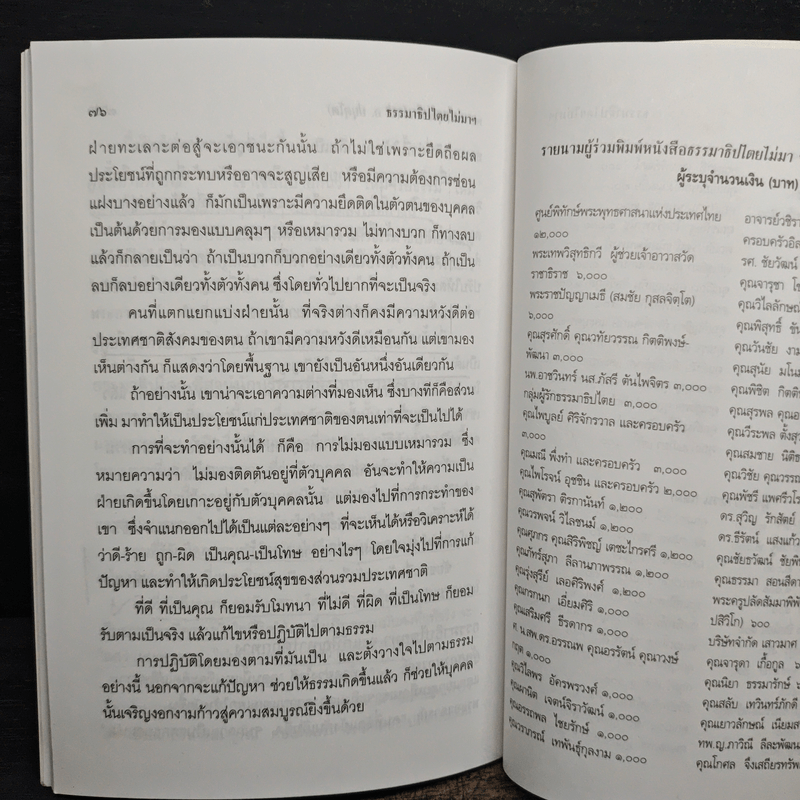 ๗๖
ธรรมาธิปไตยไม่มาฯ
ฝ่ายทะเลาะต่อสู้จะเอาชนะกันนั้น ถ้าไม่ใช่เพราะยึดถือผล
ประโยชน์ที่ถูกกระทบหรืออาจจะสูญเสีย หรือมีความต้องการซ่อน
แฝงบางอย่างแล้ว ก็มักเป็นเพราะมีความยึดติดในตัวตนของบุคคล
เป็นต้นด้วยการมองแบบคลุมๆ หรือเหมารวม ไม่ทางบวก ก็ทางลบ
แล้วก็กลายเป็นว่า ถ้าเป็นบวกก็บวกอย่างเดียวทั้งตัวทั้งคน ถ้าเป็น
ลบก็ลบอย่างเดียวทั้งตัวทั้งคน ซึ่งโดยทั่วไปยากที่จะเป็นจริง
คนที่แตกแยกแบ่งฝ่ายนั้น ที่จริงต่างก็คงมีความหวังดีต่อ
ประเทศชาติสังคมของตน ถ้าเขามีความหวังดีเหมือนกัน แต่เขามอง
เห็นต่างกัน ก็แสดงว่าโดยพื้นฐาน เขายังเป็นอันหนึ่งอันเดียวกัน
ถ้าอย่างนั้น เขาน่าจะเอาความต่างที่มองเห็น ซึ่งบางทีก็คือส่วน
เพิ่ม มาทำให้เป็นประโยชน์แก่ประเทศชาติของตนเท่าที่จะเป็นไปได้
การที่จะทำอย่างนั้นได้ ก็คือ การไม่มองแบบเหมารวม ซึ่ง
หมายความว่า ไม่มองติดตันอยู่ที่ตัวบุคคล อันจะทำให้ความเป็น
ฝ่ายเกิดขึ้นโดยเกาะอยู่กับตัวบุคคลนั้น แต่มองไปที่การกระทำของ
เขา ซึ่งจำแนกออกไปได้เป็นแต่ละอย่างๆ ที่จะเห็นได้หรือวิเคราะห์ได้
ว่าดี-ร้าย ถูก-ผิด เป็นคุณ-เป็นโทษ อย่างไรๆ โดยใจมุ่งไปที่การแก้
ปัญหา และทำให้เกิดประโยชน์สุขของส่วนรวมประเทศชาติ
ที่ดี ที่เป็นคุณ ก็ยอมรับโมทนา ที่ไม่ดี ที่ผิด ที่เป็นโทษ ก็ยอม
รับตามเป็นจริง แล้วแก้ไขหรือปฏิบัติไปตามธรรม
การปฏิบัติโดยมองตามที่มันเป็น และตั้งวางใจไปตามธรรม
อย่างนี้ นอกจากจะแก้ปัญหา ช่วยให้ธรรมเกิดขึ้นแล้ว ก็ช่วยให้บุคคล
นั้นเจริญงอกงามก้าวสู่ความสมบูรณ์ยิ่งขึ้นด้วย
รายนามผู้ร่วมพิมพ์หนังสือธรรมาธิปไตยไม่มา
ผู้ระบุจำนวนเงิน (บาท)
ศูนย์พิทักษ์พระพุทธศาสนาแห่งประเทศไทย
๑๒,๐๐๐
พระเทพวิสุทธิกวี ผู้ช่วยเจ้าอาวาสวัด
ราชาธิราช ๖,๐๐๐
พระราชปัญญาเมธี (สมชัย กุสลจิตฺโต)
๖,๐๐๐
คุณสุรศักดิ์ คุณวทัยวรรณ กิตติพงษ์-
พัฒนา ๓,๐๐๐
นพ.อาชวินทร์ นส.ภัสรี ตันไพจิตร ๓,๐๐๐
กลุ่มผู้รักธรรมาธิปไตย ๓,๐๐๐
คุณไพบูลย์ ศิริจักรวาล และครอบครัว
๓,๐๐๐
คุณมณี พึ่งทำ และครอบครัว ๓,๐๐๐
คุณไพโรจน์ อุชชิน และครอบครัว ๒,๐๐๐
คุณสุพัตรา ติรกานันท์ ๑,๒๐๐
คุณวรพจน์ วิไลชนม์ ๑,๒๐๐
คุณศุภกร คุณสิริพิชญ์ เตชะไกรศรี ๑,๒๐๐
คุณภัทร์สุภา ลีลานภาพรรณ ๑,๒๐๐
คุณรุ่งสุรีย์ เลอศิริพงศ์ ๑,๒๐๐
คุณกรกนก เอี่ยมศิริ ๑,๐๐๐
คุณเสริมศรี ธีรดากร ๑,๐๐๐
ศ.น.สพ.ดร.อรรณพ คุณอรรัตน์ คุณาวงษ์
กฤต ๑,๐๐๐
คุณวิไลพร อัครพรวงศ์ ๑,๐๐๐
คุณมานิต เจตน์จิราวัฒน์ ๑,๐๐๐
คุณอรรถพล ไชยรักษ์ ๑,๐๐๐
คุณวราภรณ์ เทพันธุ์กุลงาม ๑,๐๐๐
อาจารย์วชิรา
ครอบครัวอิส
รศ. ชัยวัฒน์
คุณจารุชา โช
คุณวิไลลักษณ์
คุณพิสุทธิ์ ขัน
คุณวันชัย งาม
คุณสุนัย มโนม
คุณพิชิต กิตติ
คุณสุรพล คุณอ
คุณวีระพล ตั้งสุว
คุณสมชาย นิติธ
คุณวิชัย คุณวรรณ
คุณพัชรี แพศรีวโร
ดร.สุวิญ รักสัตย์
ดร.ธีรัตน์ แสงแก้ว
คุณชัยธวัฒน์ ชัยพิ
คุณธรรมา สอนสีดา
พระครูปลัดสัมมาพิพั
ปสิวิโก) ๖๐๐
บริษัทจำกัด เสาวมาศ
คุณจารุดา เกื้อกูล ๖
คุณนิยา ธรรมารักษ์ ๖
คุณสลับ เทวินทร์ภักดี
คุณเยาวลักษณ์ เนียมส
ทพ.ญ.ภาวิณี ลีละพัฒน
คุณโกศล จึงเสถียรทรัพ